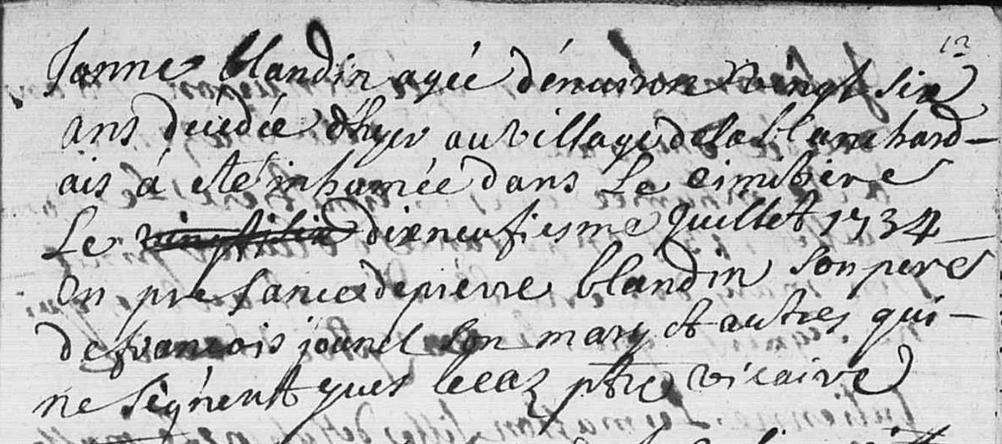 12
Janne blandin agée dénuiron vingt six
ans décédée d'hyer au village de la blanchard-
ais á esté inhumée dans Le cimitiere
Le vingt sixie dixneufiesme Juillet 1734
En presance de pierre blandin son pere
de francois jounel son mary et autres qui
ne signent yues lecaz ptre vicaire